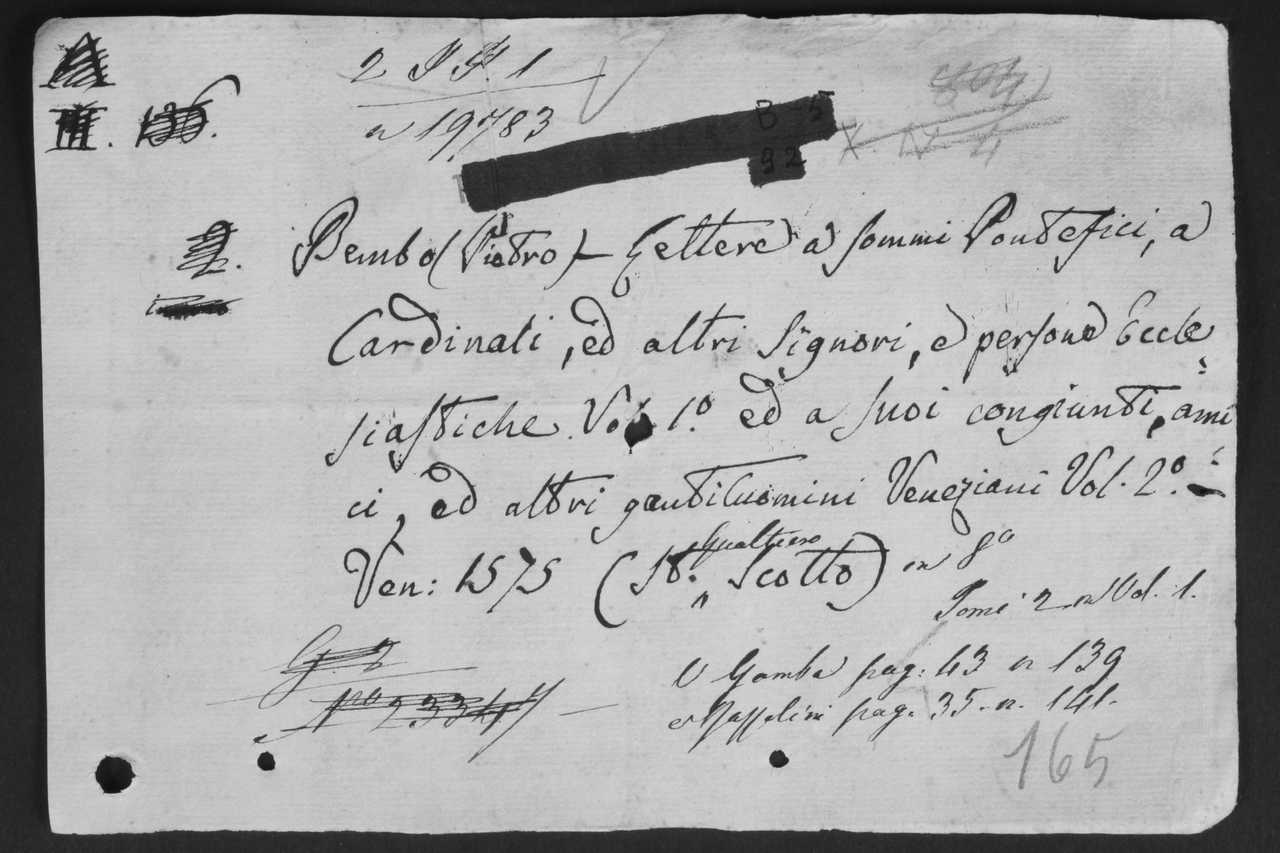 III. 136.
2 I H. 1
n 19783
B 5
92
X. IV. 4
Bembo (Pietro) Lettere a sommi Pontefici, a
Cardinali, ed altri Signori, e persone Eccle
siastiche Vol. 1.° ed a suoi congiunti, ami
ci, ed altri gentiluomini Veneziani Vol. 2.°
Ven: 1575 (St. Gualtiero Scotto) in 8°
Tomi 2 in Vol. 1.
G. 2
N.ro 23347
V Gamba pag: 43 n 139
e Razzolini pag. 35. n. 141.
165